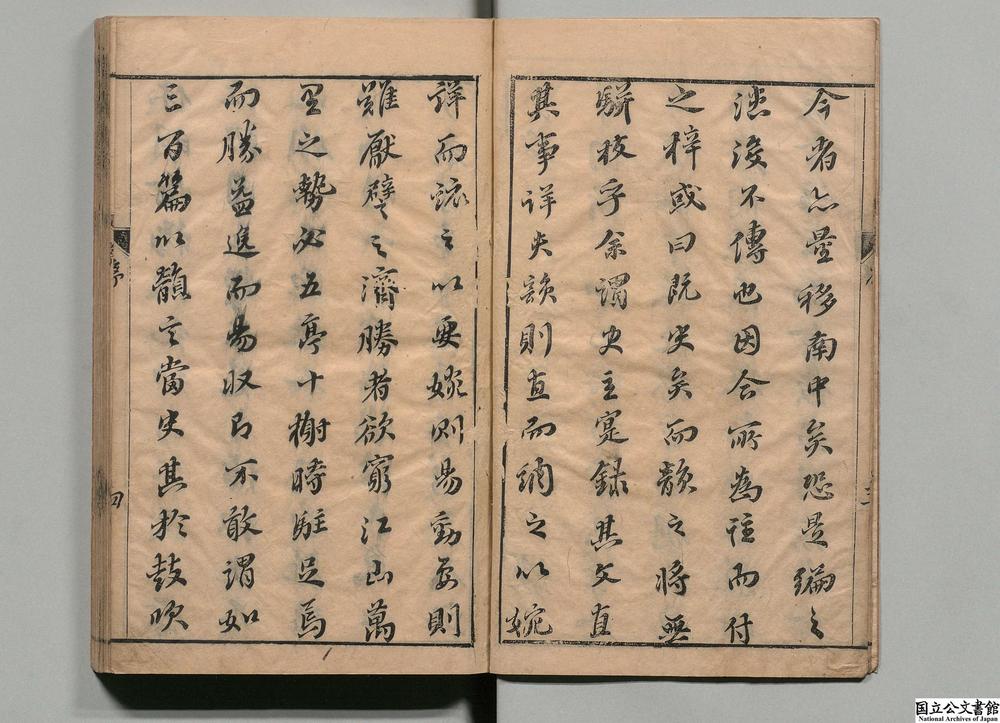 今者亦量移南中矣恐是編之
湮沒不傳也因合所為註而付
之梓或曰既史矣而韻之將無
駢枝乎余謂史主寔録其文直
其事詳史韻則直而綃之以婉
詳而綜之以要婉則易動要則
難厭譬之濟勝者欲窮江山萬
里之勢必五亭十榭時駐足焉
而勝益進而易収乃不敢謂如
三百篇以韻言當史其於鼓吹
序
三
四
国立公文書館
National Archives of Japan